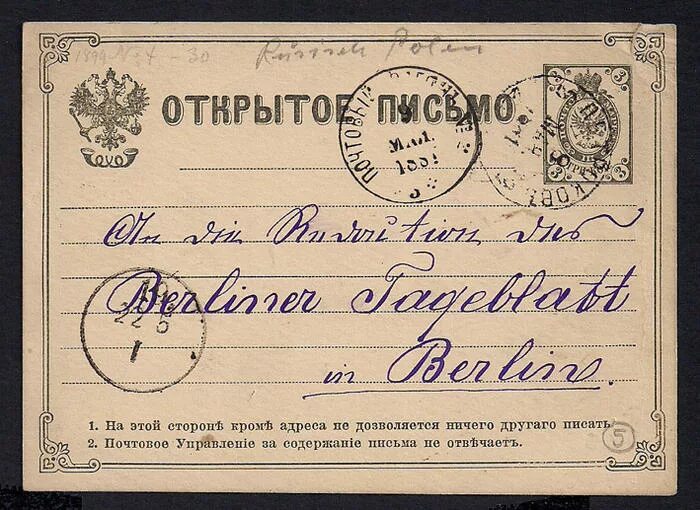 Russisch Polen
ОТКРЫТОЕ ПИСЬМО
ПОЧТОВЫЙ
9
МАЯ
1881
3
3 3
3 3
An die Redaction des
Berliner Tageblatt
in Berlin.
1
1. На этой сторонѣ кромѣ адреса не дозволяется ничего другаго писать.
2. Почтовое Управленіе за содержаніе письма не отвѣчаетъ.
5